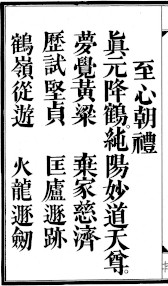 至心朝禮
眞元降鶴。純陽妙道天尊。
夢覺黃粱　棄家慈濟
歷試堅貞　匡廬遯跡
鶴嶺從遊　火龍遯劍